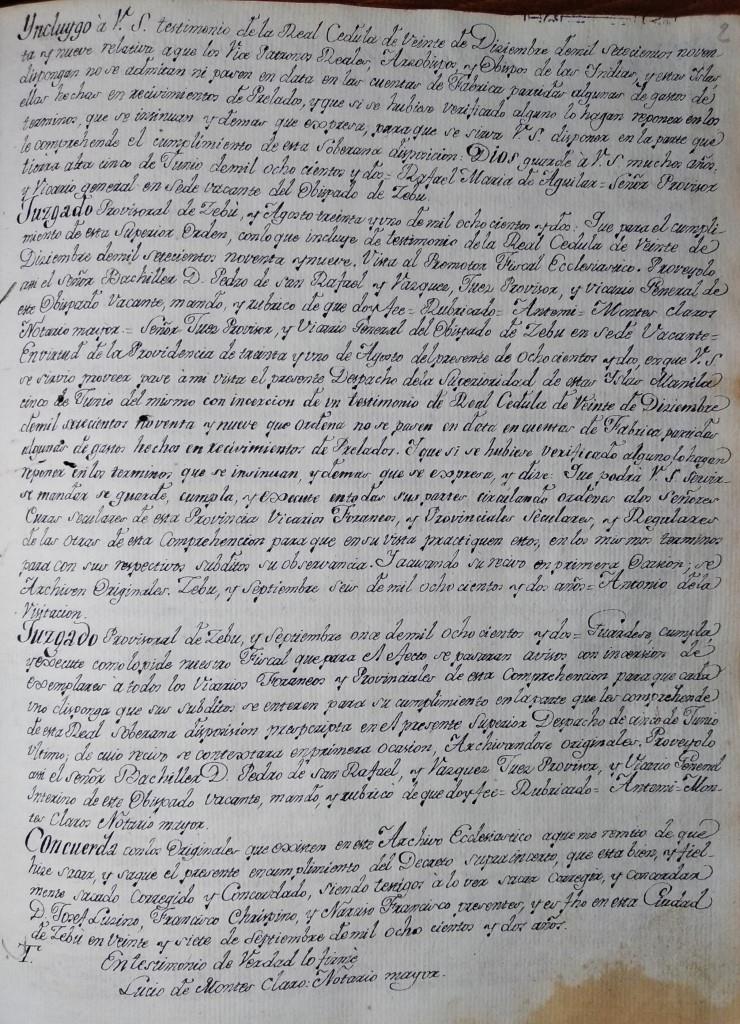 2
Yncluygo à V. S. testimonio de la Real Cedula de Veinte de Diziembre de mil setecientos noven-
ta y nueve relativa a que los Vice Patronos Reales, Arzobispos, y Obispos de las Indias, y estas Yslas
dispongan no se admitan ni pasen en data en las cuentas de Fabrica partidas algunas de gastos de
ellas hechas en recivimientos de Prelados, y que si se hubiese verificado alguno lo hagan reponer en los
terminos, que se insinuan y demas que expresa, para que se sirva V. S. disponer en la parte que
le comprehende el cumplimiento de esta Soberana disposicion: Dios guarde à V. S. muchos años;
cinco de Junio de mil ocho cientos y dos= Rafael Maria de Aguilar= Señor Provisor
y Vicario general en sede vacante del Obispado de Zebu.
Juzgado Provisoral de Zebu, y Agosto treinta y uno de mil ocho cientos y dos. Que para el cumpli-
miento de esta Superior Orden, con lo que incluye de testimonio de la Real Cedula de Veinte de
Diziembre de mil setecientos noventa y nueve. Vista al Promotor Fiscal Ecclesiastico. Proveyolo
asi el Señor Bachiller D. Pedro de San Rafael y Vazquez, Juez Provisor, y Vicario General de
este Obispado Vacante, mando, y rubrico de que doy fee= Rubricado= Antemi= Montes Claros
Notario mayor.= Señor Juez Provisor, y Vicario General del Obispado de Zebu en Sede Vacante=
En virtud de la Providencia de treinta y uno de Agosto del presente de ocho cientos y dos, en que V. S
se sirvio proveer pase à mi vista el presente Despacho de la Superioridad de estas Yslas Manila
cinco de Junio del mismo con incercion de un testimonio de Real Cedula de Veinte de Diziembre
de mil setecientos noventa y nueve que ordena no se pasen en data en cuentas de Fabrica partidas
algunas de gastos hechos en recivimientos de Prelados. Y que si se hubiese verificado alguno lo hagan
reponer en los terminos que se insinuan, y demas que se expresa, y dize: Que podrá V. S. servir-
se mandar se guarde, cumpla, y execute en todas sus partes circulando ordenes a los Señores
Curas seculares de esta Provincia Vicarios Foraneos, y Provinciales Seculares, y Regulares
de las otras de esta Comprehencion para que en su vista practiquen estos, en los mismos terminos
para con sus respectivos subditos su observancia. Y acusando su recivo en primera Ocasion; se
Archiven Originales. Zebu, y Septiembre seis de mil ocho cientos y dos años= Antonio de la
Visitacion.
Juzgado Provisoral de Zebu, y Septiembre once de mil ocho cientos y dos= Guardese, cumpla
y execute como lo pide nuestro Fiscal que para el efecto se pasaran avisos con incersion de
exemplares a todos los Vicarios Foraneos y Provinciales de esta Comprehencion para que cada
uno disponga que sus subditos se enteren para su cumplimiento en la parte que les comprehende
de esta Real Soberana disposision prescripta en el presente Superior Despacho de cinco de Junio
ultimo; de cuio recivo se contextara en primera ocasion, Archivandose originales. Proveyolo
asi el Señor Bachiller D. Pedro de San Rafael, y Vazquez Juez Provisor, y Vicario General
Interino de este Obispado vacante, mando, y rubricó de que doy fee= Rubricado= Antemi= Mon-
tes Claros Notario mayor.
Concuerda con los Originales que existen en este Archivo Ecclesiastico a que me remito de que
hize sacar, y saque el presente en cumplimiento del Decreto suprainserto, que esta bien, y fiel-
mente sacado Corregido y Concordado, siendo testigos à lo ver sacar corregir, y concordar
D. Josef Luzino, Francisco Chrispino, y Narciso Francisco presentes, y es fho en esta Ciudad
de Zebu en veinte y siete de Septiembre de mil ocho cientos y dos años.
En testimonio de Verdad lo firmé
Lucio de Montes Claro: Notario mayor.